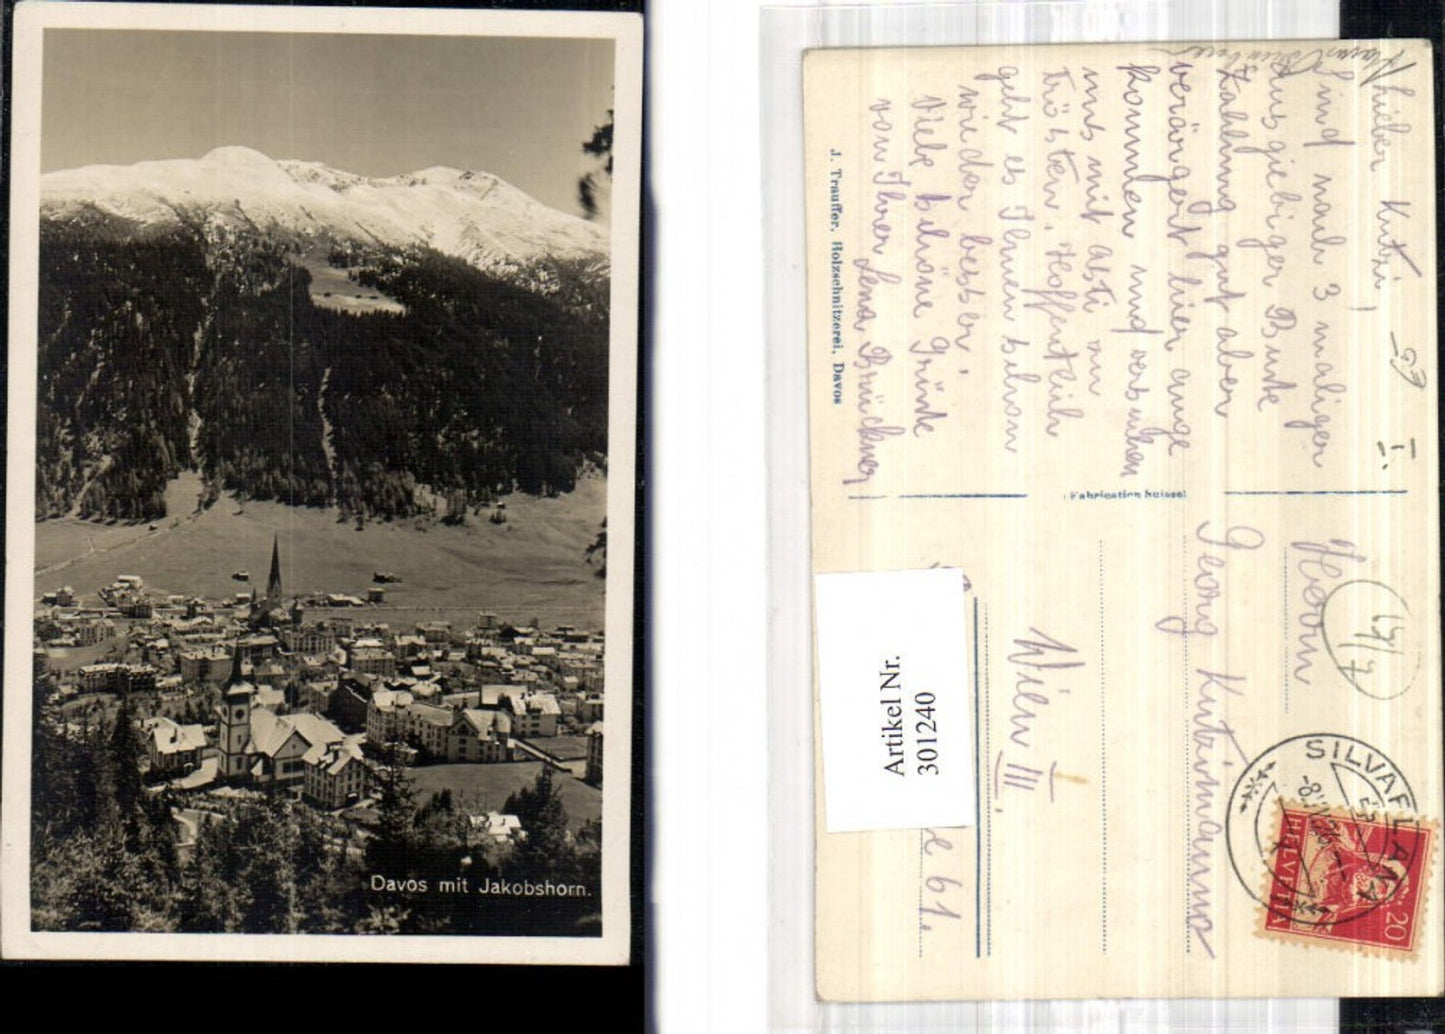 Davos mit Jakobshorn.
Lieber Kutzi,
Sind nach 3 maliger
ausgiebiger Busse
Zahlung gut aber
verärgert hier ange
kommen und versuchen
uns mit asti zu
trösten, Hoffentlich
geht es Ihnen schon
wieder besser,
Viele schöne Grüsse
von Ihrer Lena Brückner
J. Trauffer, Holzschnitzerei, Davos
(Fabrication Suisse)
Herrn
Georg Kutzi
Wien III.
61.
Artikel Nr.
301240
SILVAPLANA
HELVETIA
20